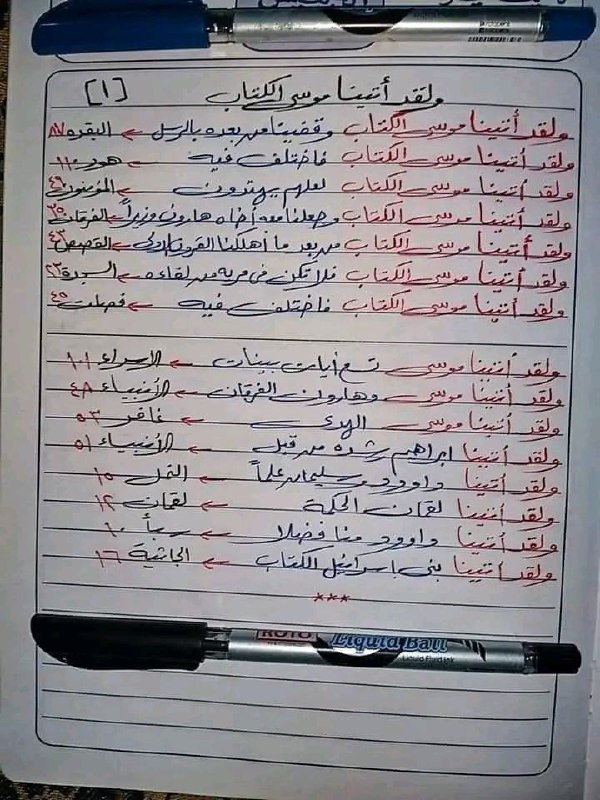 ولقد أتينا موسى الكتاب [١]
ولقد أتينا موسى الكتاب وقفينا من بعده بالرسل ← البقره ٨٧
ولقد أتينا موسى الكتاب فاختلف فيه ← هود ١١٠
ولقد أتينا موسى الكتاب لعلهم يهتدون ← المؤمنون ٤٩
ولقد أتينا موسى الكتاب وجعلنا معه أخاه هارون وزيراً ← الفرقان ٣٥
ولقد أتينا موسى الكتاب من بعد ما أهلكنا القرون الأولى ← القصص ٤٣
ولقد أتينا موسى الكتاب فلا تكن في مرية من لقاءه ← السجدة ٢٣
ولقد أتينا موسى الكتاب فاختلف فيه ← فصلت ٤٥
ولقد أتينا موسى تسع أيات بينات ← الإسراء ١٠١
ولقد أتينا موسى وهارون الفرقان ← الأنبياء ٤٨
ولقد أتينا موسى الهدى ← غافر ٥٣
ولقد أتينا ابراهيم رشده من قبل ← الأنبياء ٥١
ولقد أتينا داوود وسليمان علماً ← النمل ١٥
ولقد أتينا لقمان الحكمة ← لقمان ١٢
ولقد أتينا داوود منا فضلا ← سبأ ١٠
ولقد أتينا بني اسرائيل الكتاب ← الجاثية ١٦
***
ROTO Liquid Ball
Liquid Fluid Ink